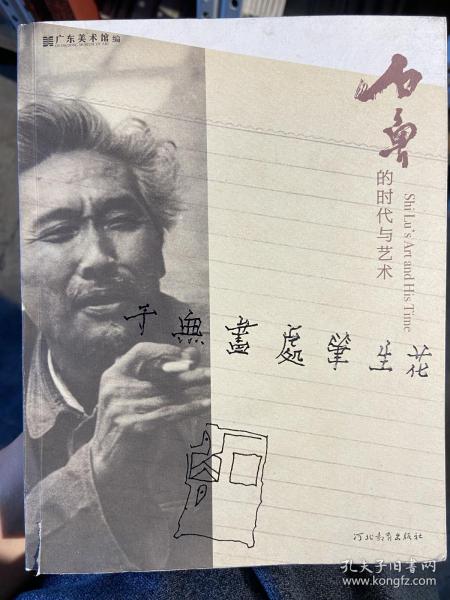 广东美术馆 编
GUANGDONG MUSEUM OF ART
石鲁
的时代与艺术
Shi Lu's Art and His Time
于無畫處筆生花
河北教育出版社
孔夫子旧书网
www.kongfz.com